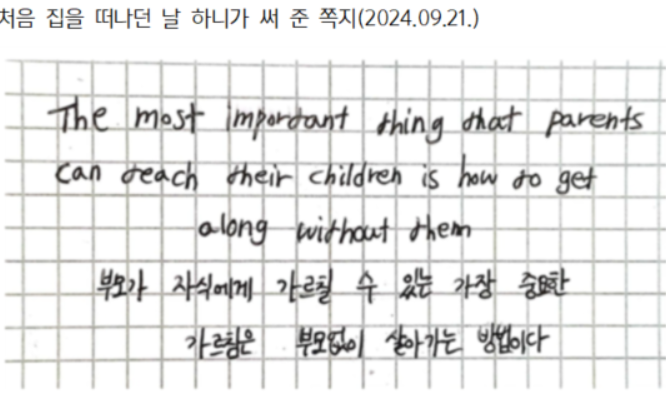 처음 집을 떠나던 날 하니가 써 준 쪽지(2024.09.21.)
The most important thing that parents
can teach their children is how to get
along without them
부모가 자식에게 가르칠 수 있는 가장 중요한
가르침은 부모없이 살아가는 방법이다